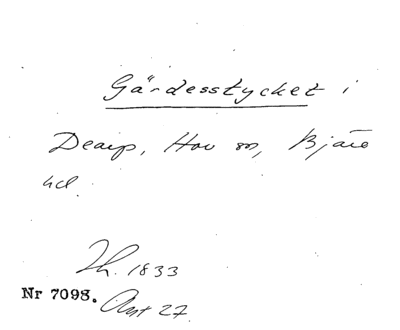 Gärdesstycket i
Dearp, Hov sn, Bjäre
hd.
Th. 1833
Nr 7098. Ant 27